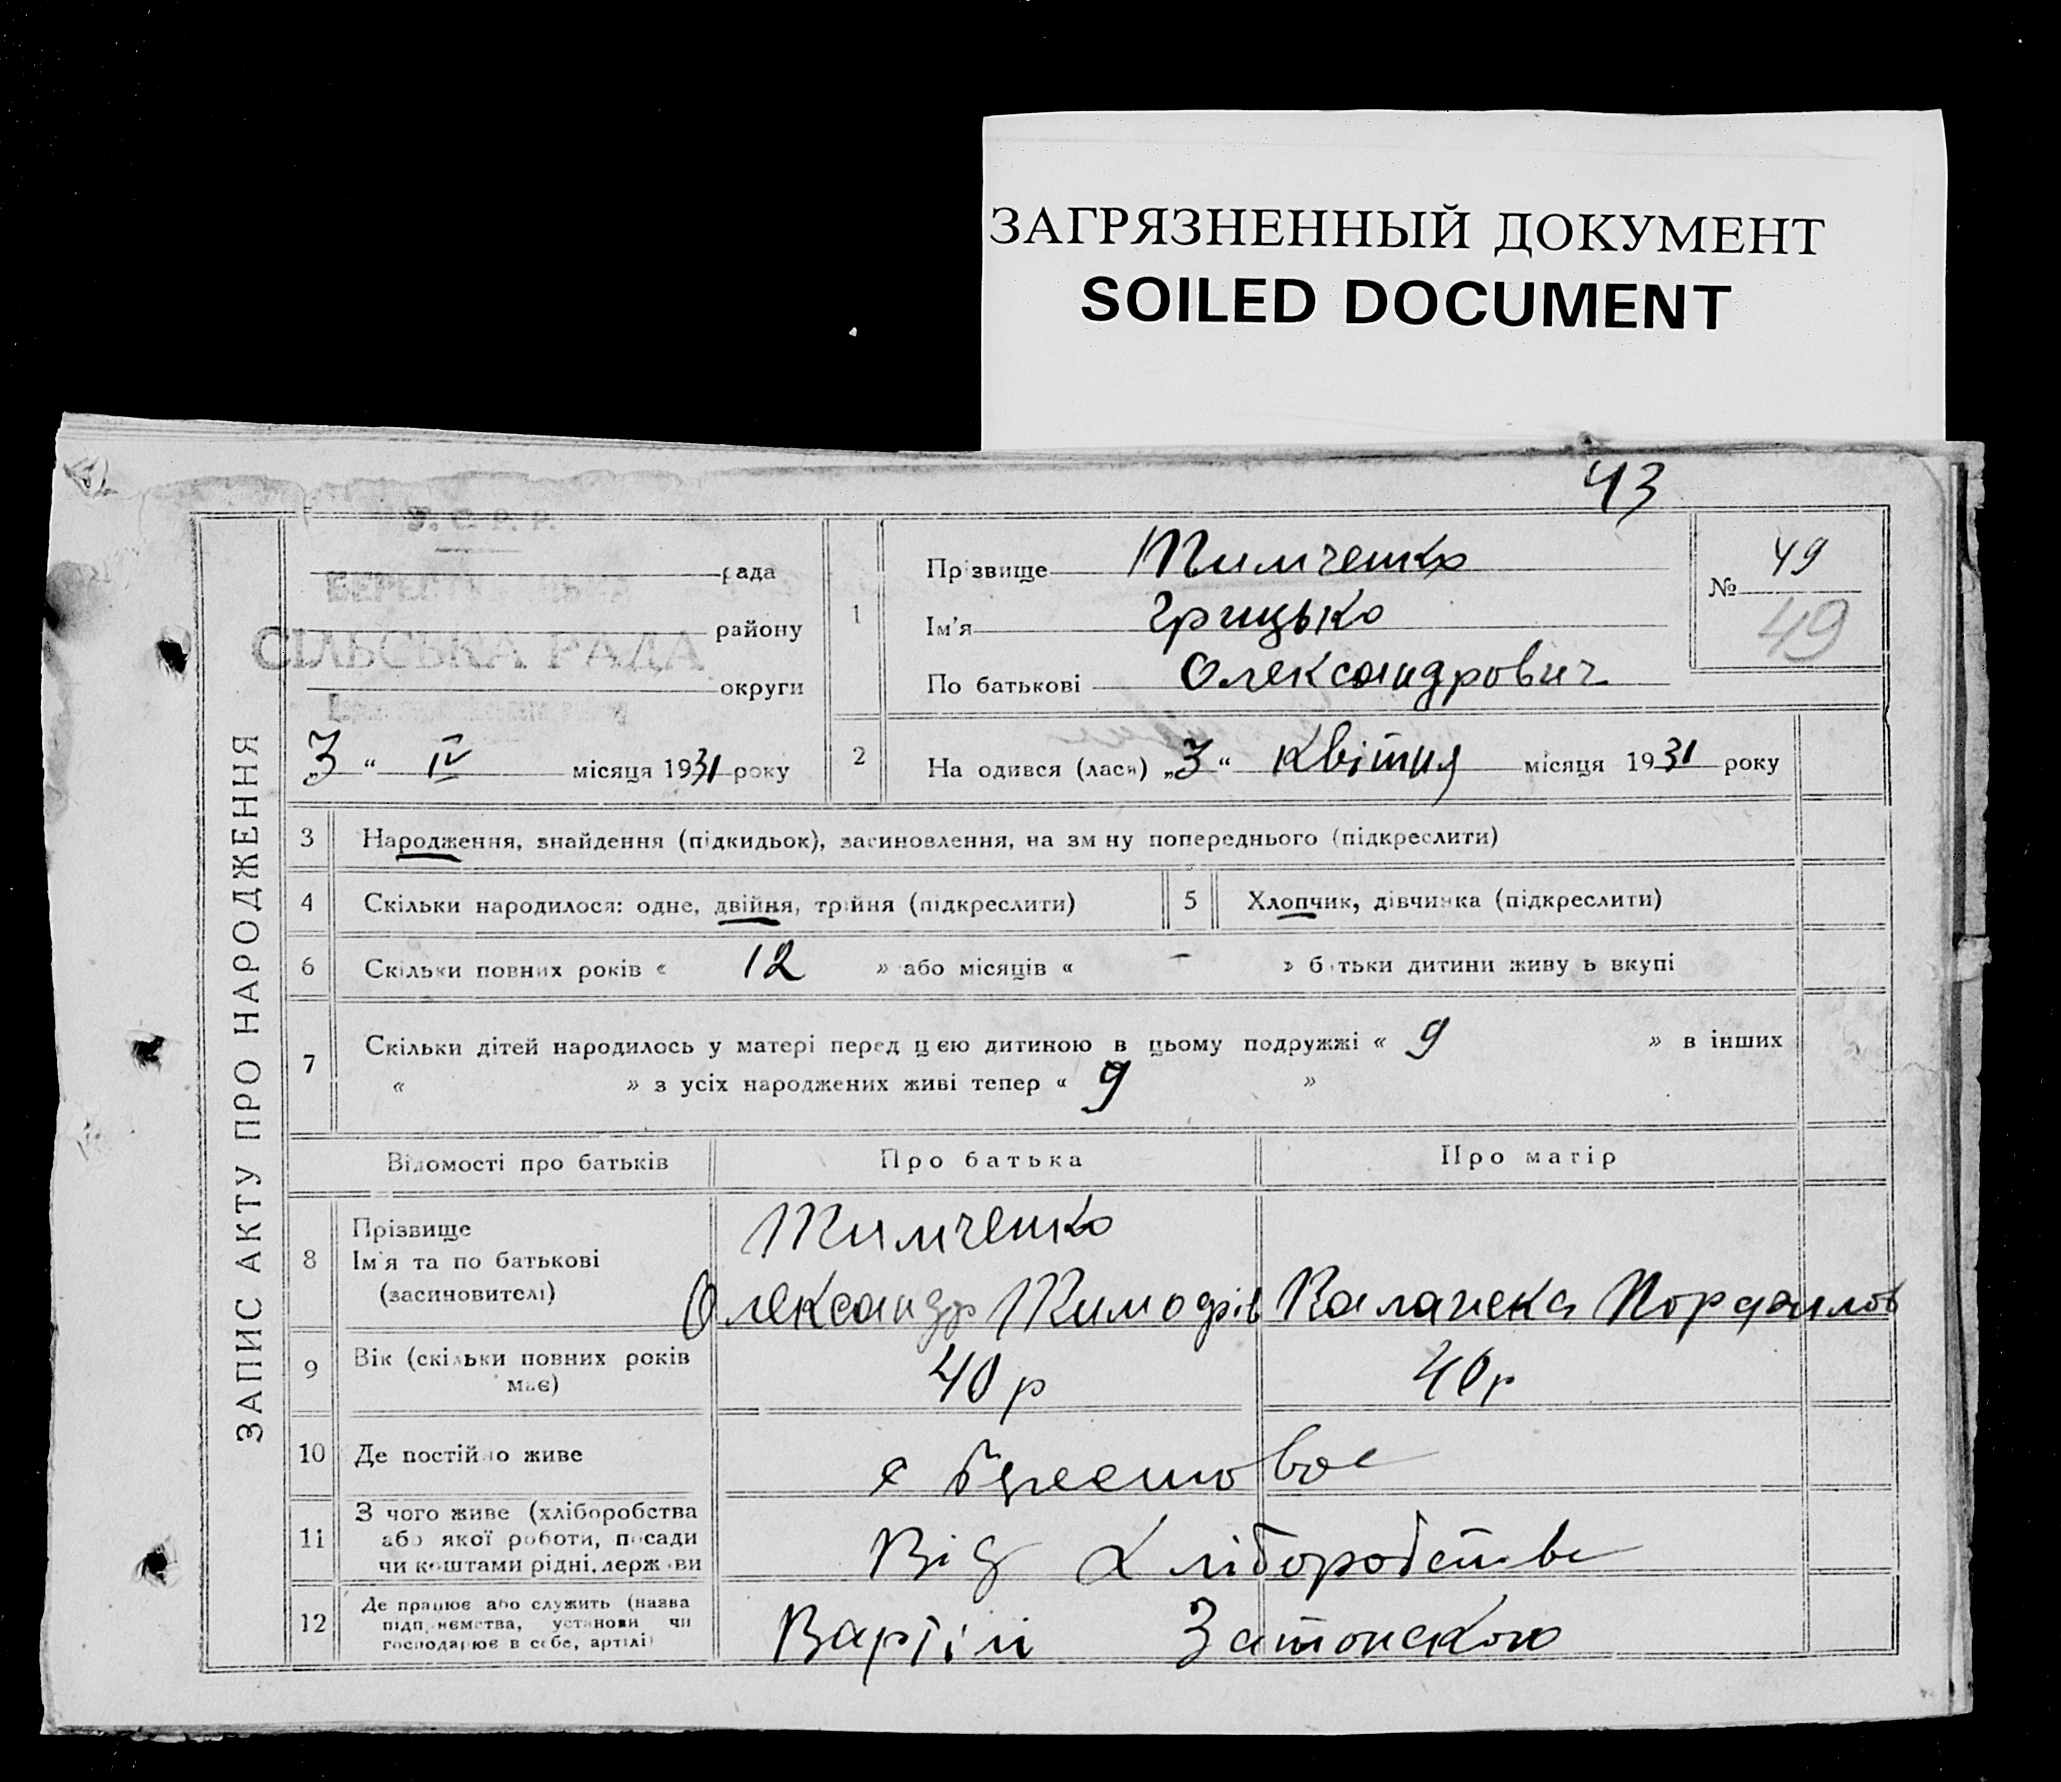 ЗАГРЯЗНЕННЫЙ ДОКУМЕНТ
SOILED DOCUMENT
43
У. С. Р. Р.
рада
району
СІЛЬСЬКА РАДА
округи
3 " IV місяця 1931 року
1
Прізвище Тимченко
Ім'я Грицько
По батькові Олександрович
№ 49
49
2 На одився (лася) „3“ Квітня місяця 1931 року
ЗАПИС АКТУ ПРО НАРОДЖЕННЯ
3 Народження, знайдення (підкидьок), засиновлення, на зм ну попереднього (підкреслити)
4 Скільки народилося: одне, двійня, трійня (підкреслити)
5 Хлопчик, дівчинка (підкреслити)
6 Скільки повних років « 12 » або місяців « - » б тьки дитини живу ь вкупі
7 Скільки дітей народилось у матері перед цією дитиною в цьому подружжі « 9 » в інших
« » з усіх народжених живі тепер « 9 »
Відомості про батьків Про батька Про матір
8 Прізвище
Ім'я та по батькові
(засиновителі)
Тимченко
Олександр Тимофів
9 Вік (скільки повних років
має)
40 р 40 р
10 Де постійно живе
с
11 З чого живе (хліборобства
або якої роботи, посади
чи коштами рідні, держави
Від Хліборобства
12 Де працює або служить (назва
підп ємства, установи чи
господарює в себе, артілі)
Вартілі Затонского